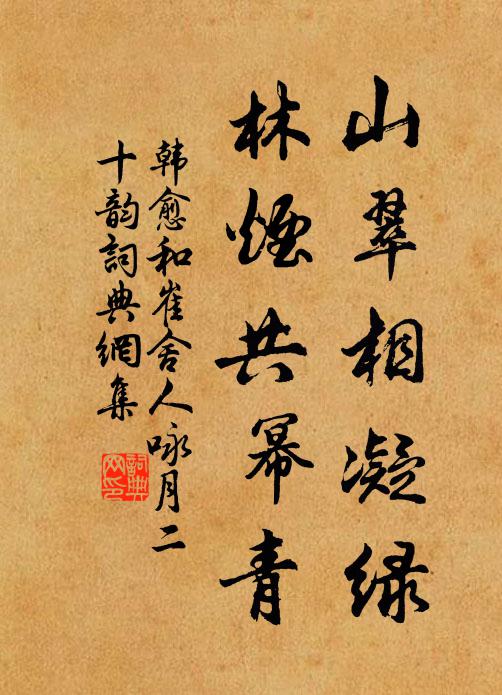 山翠相凝绿
林煙共幂青
韩愈和崔舍人咏月二
十韵詞典網集
詞典
网印